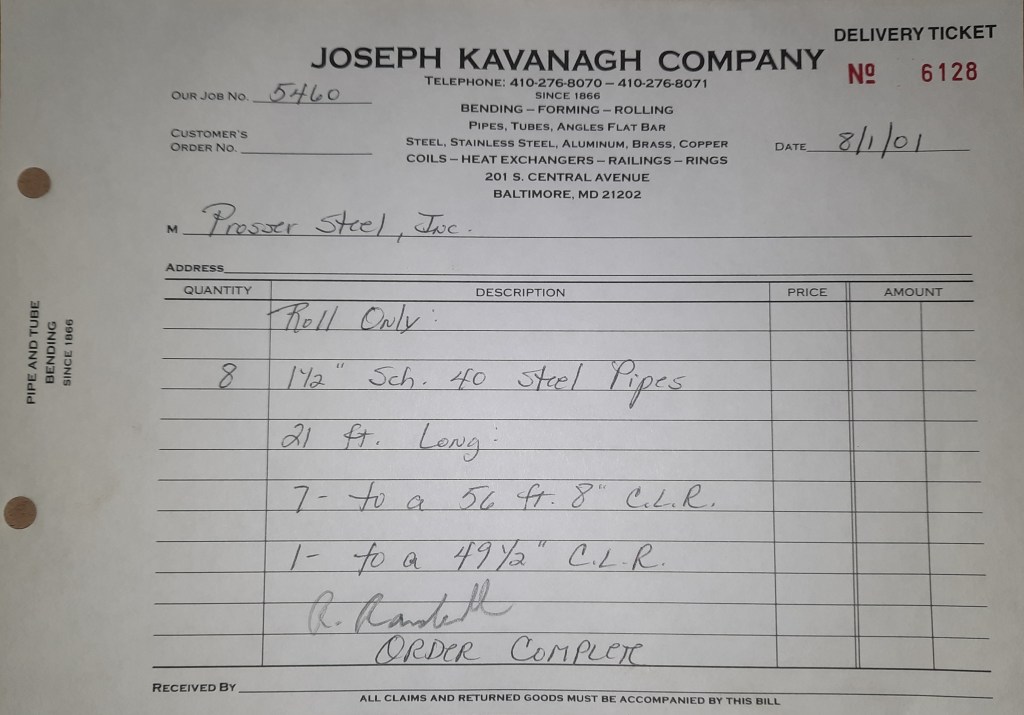 DELIVERY TICKET
JOSEPH KAVANAGH COMPANY
Nº 6128
TELEPHONE: 410-276-8070 – 410-276-8071
SINCE 1866
OUR JOB NO. 5460
BENDING – FORMING – ROLLING
PIPES, TUBES, ANGLES FLAT BAR
CUSTOMER'S
ORDER NO.
STEEL, STAINLESS STEEL, ALUMINUM, BRASS, COPPER
DATE 8/1/01
COILS – HEAT EXCHANGERS – RAILINGS – RINGS
201 S. CENTRAL AVENUE
BALTIMORE, MD 21202
M Prosser Steel, Inc.
ADDRESS
QUANTITY DESCRIPTION PRICE AMOUNT
Roll Only:
8 1 1/2" Sch. 40 Steel Pipes
21 ft. Long:
7- to a 56 ft. 8" C.L.R.
1- to a 49 1/2" C.L.R.
ORDER COMPLETE
RECEIVED BY
ALL CLAIMS AND RETURNED GOODS MUST BE ACCOMPANIED BY THIS BILL
PIPE AND TUBE
BENDING
SINCE 1866